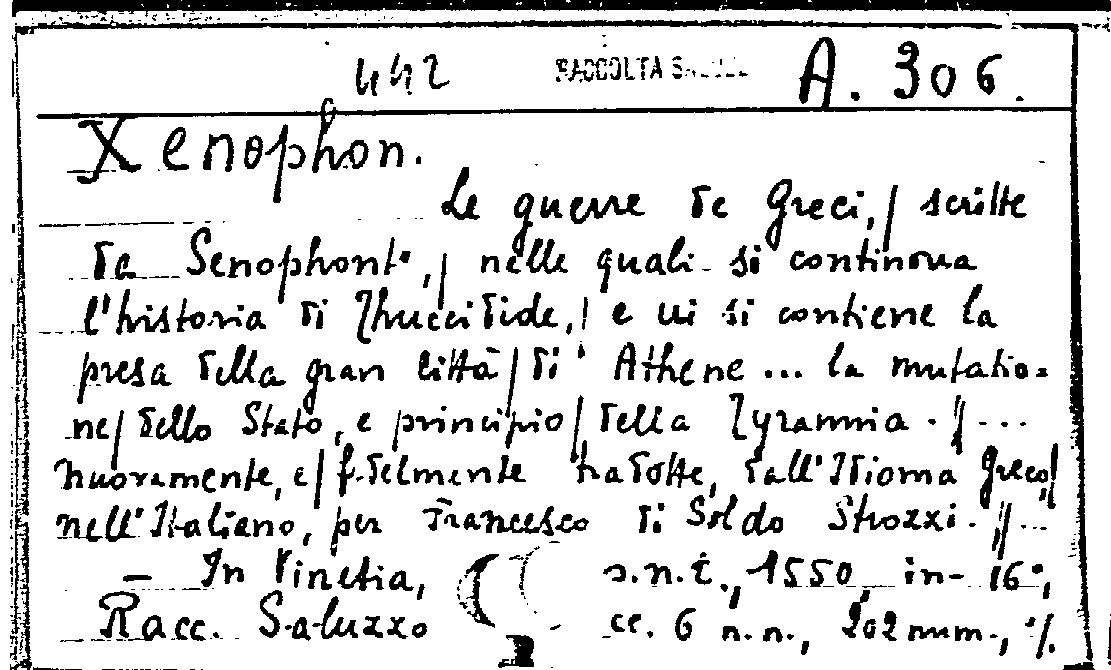 442 RACCOLTA A. 306.
Xenophon.
Le guerre de Greci, / scritte
da Senophonte, / nelle quali si continova
l'historia di Thuccidide, / e ui si contiene la
presa della gran città / di Athene ... la mutatio=
ne / dello Stato, e principio / della Tyrannia. // ...
nuovamente, e / fidelmente tradotte, dall'Idioma Greco /
nell'Italiano, per Francesco di Soldo Strozzi. // ...
— In Vinetia, s.n.t., 1550, in-16°,
Racc. Saluzzo cc. 6 n.n., 202 num., %.